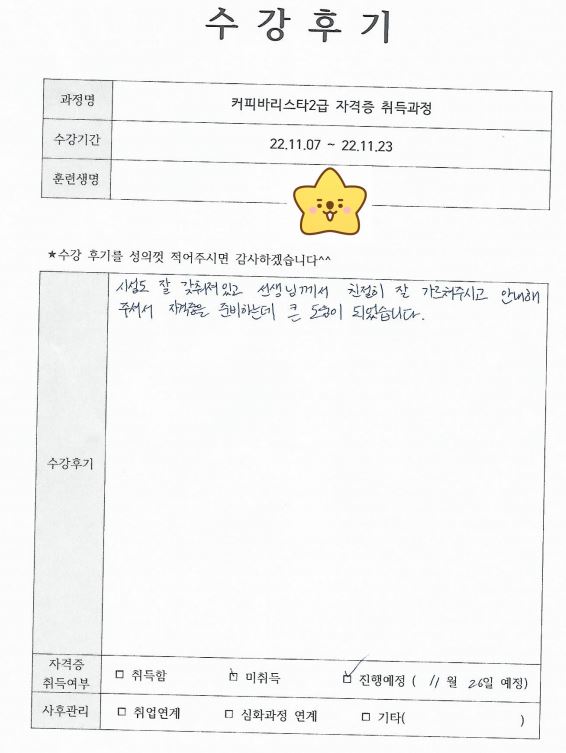 수강후기
과정명 커피바리스타2급 자격증 취득과정
수강기간 22.11.07 ~ 22.11.23
훈련생명
★수강 후기를 성의껏 적어주시면 감사하겠습니다^^
시설도 잘 갖춰져있고 선생님께서 친절히 잘 가르쳐주시고 안내해
주셔서 자격증을 준비하는데 큰 도움이 되었습니다.
수강후기
자격증
취득여부 □ 취득함 □ 미취득 ☑ 진행예정 ( 11 월 26일 예정)
사후관리 □ 취업연계 □ 심화과정 연계 □ 기타( )